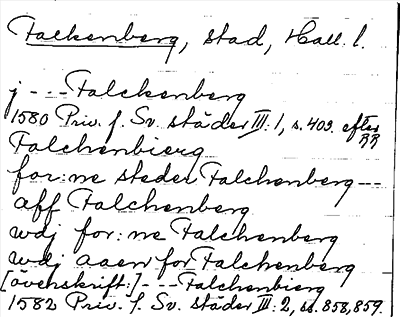 Falkenberg, stad, Hall. l.
j --- Falckenberg
1580 Priv. f. Sv. städer III: 1, s. 409. efter RR
Falchenbierg
for:ne steder Falchenberg --
aff Falchenberg
wdj for:ne Falchenberg
wdj aaen for Falchenberg
[överskrift:] --- Falchenbierg
1582 Priv. f. Sv. städer III: 2, ss. 858, 859.